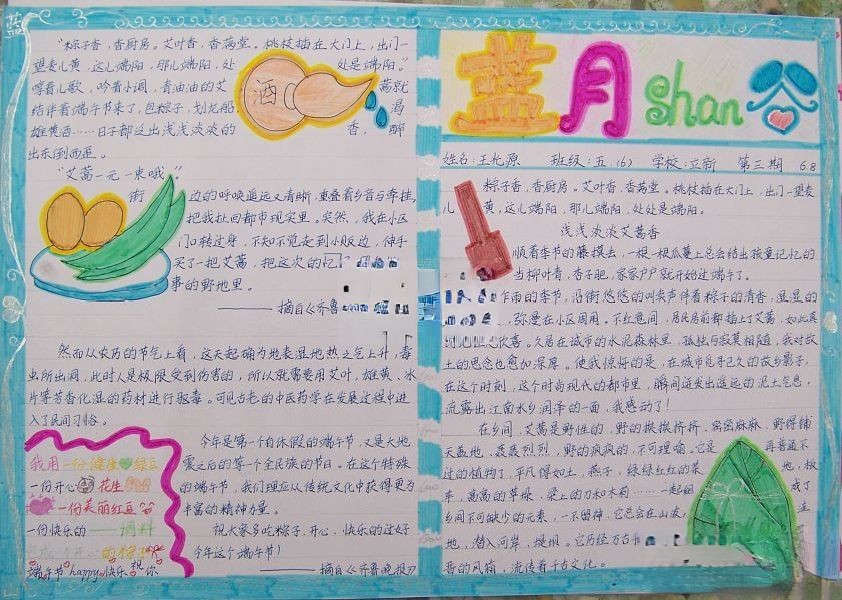 “粽子香，香厨房。艾叶香，香满堂。桃枝插在大门上，出门一
望麦儿黄，这儿端阳，那儿端阳，处处是端阳。”
哼着儿歌，吟着小调，青油油的艾蒿就
结伴着端午节来了，包粽子，划龙船，渴
雄黄酒……日子都这出浅浅淡淡的香，醉
出东倒西歪。
酒
“艾蒿一元一束哦。”
街边的呼唤遥远又清晰，重叠着乡音与牵挂，
把我扯回都市现实里。突然，我在小区
门口转过身，不知不觉走到小贩边，伸手
买了一把艾蒿，把这次的忆
事的野地里。
——摘自《齐鲁
然而从农历的节气上看，这天起确为地表湿地热之气上升，毒
虫所出洞，此时人是极限受到伤害的，所以就需要用艾叶，雄黄、冰
片等芳香化湿的药材进行驱毒。可见古老的中医药学在发展过程中进
入了民间习俗。
我用一份健康绿豆
一份开心花生
一份美丽红豆
一份快乐的——调料
开心的粽
端午节happy快乐祝你
今年是第一个自休假的端午节，又是大地
震之后的第一个全民族的节日。在这个特殊
的端午节，我们理应从传统文化中获得更为
丰富的精神力量。
祝大家多吃粽子，开心、快乐的过好
今年这个端午节！
——摘自《齐鲁晚报》
蓝月shan谷
姓名：王允源 班级：五（6） 学校：立新 第三期 6.8
粽子香，香厨房。艾叶香，香满堂。桃枝插在大门上，出门一望麦
儿黄，这儿端阳，那儿端阳，处处是端阳。
浅浅淡淡艾蒿香
顺着季节的藤摸去，一根一根瓜蔓上总会结出孩童记忆的
当柳叶青，杏子肥，家家户户就开始过端午了。
作雨的季节，沿街悠悠的叫卖声伴着粽子的清香，显显的
弥漫在小区周围。不经意间，居民房前都插上了艾蒿，如此真
欣喜。久居在城市的水泥森林里，孤独与寂寞相随，我对故
土的思念也愈加深厚。使我惊悸的是，在城市觅寻已久的故乡影子，
在这个时刻，这个时尚现代的都市里，瞬间迸发出遥远的泥土气息，
流露出江南水乡润泽的一面，我感动了！
在乡间，艾蒿是野性的，野的挨挨挤挤、密密麻麻，野得铺
天盖地、轰轰烈烈，野的疯疯的，不可理喻。它是再普通不
过的植物了，平凡得如土，燕子，绿绿红红的菜地，板
车，高高的草垛，梁上的刀和木莉……一起组成了
乡间不可缺少的元素，一不留神，它总会在山坡，洼
地，潜入河岸、堤坝。它历经万古
香的风箱，流传着千古文化。